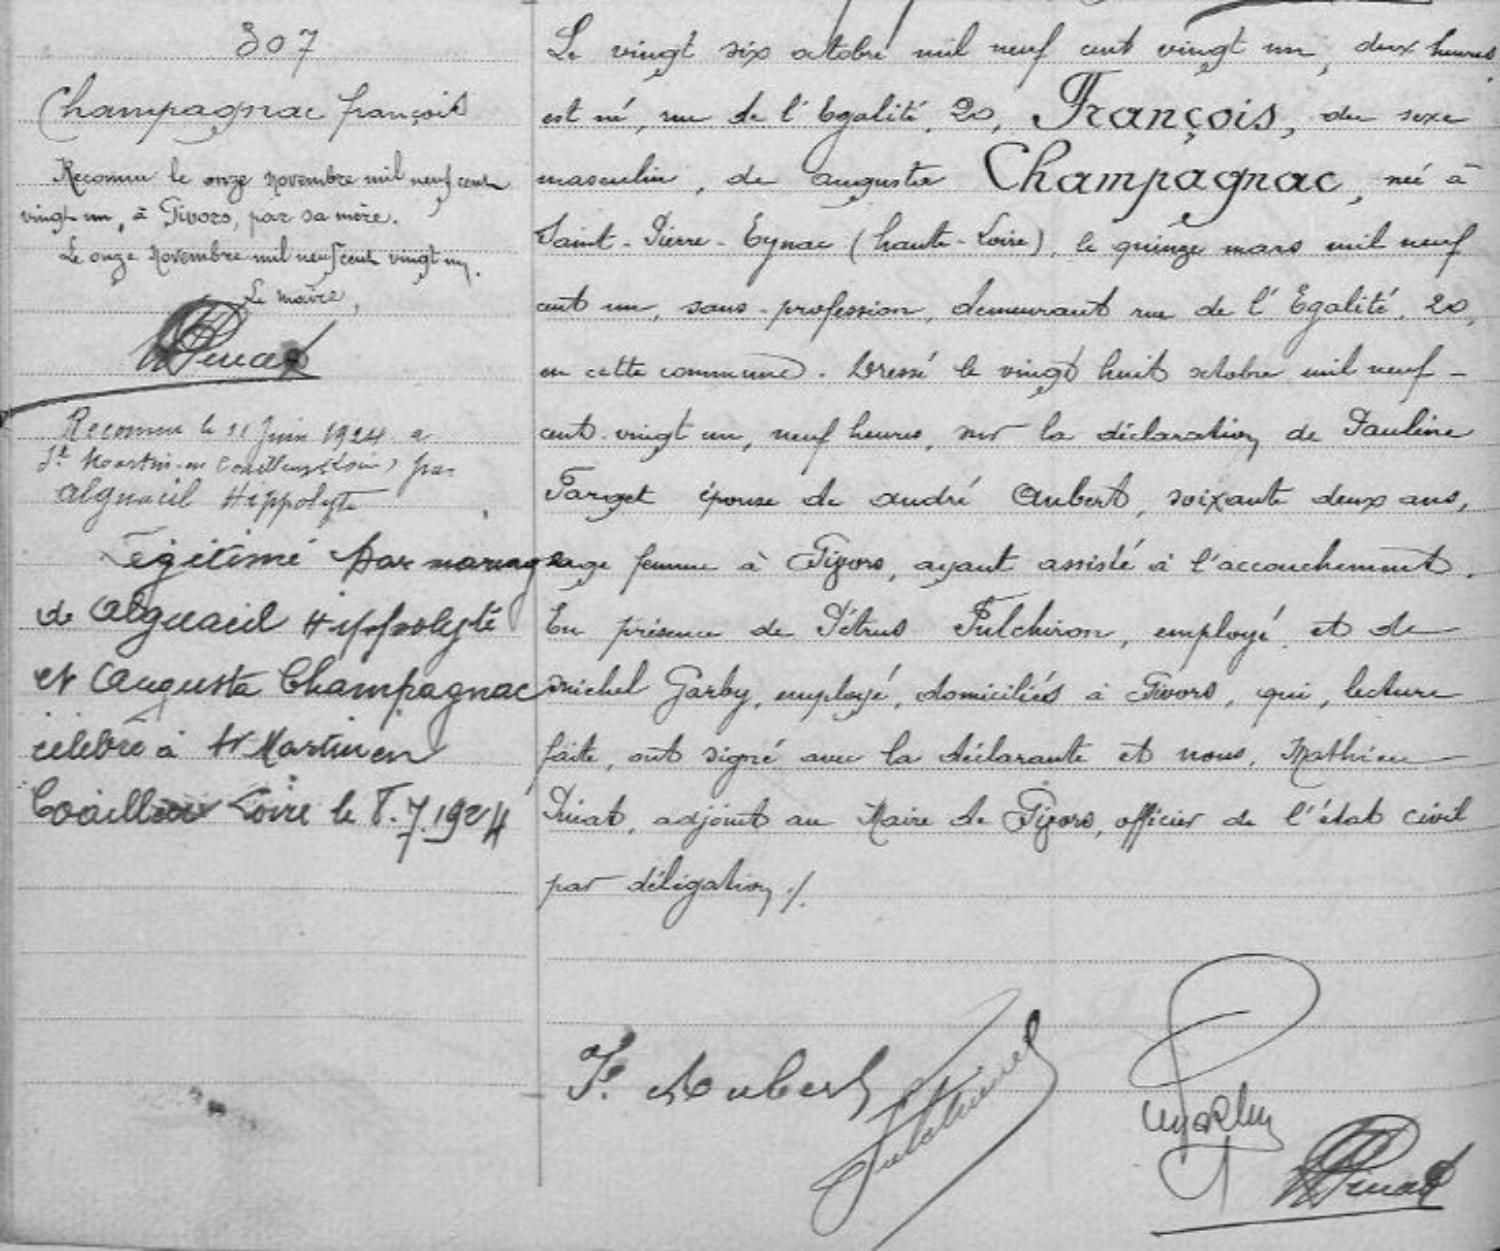 307
Champagnac françois
Reconnu le onze novembre mil neuf cent
vingt un, à Givors, par sa mère.
Le onze Novembre mil neuf cent vingt un.
Le maire,
Pinat
Reconnu le 11 Juin 1924 a
St Martin-en Coailleux (Loire) par
Alguacil Hippolyte
Légitimé par mariage
de Alguacil Hippolyte
et Augusta Champagnac
célébré à St Martin en
Coailleux Loire le 8.7.1924
Le vingt six octobre mil neuf cent vingt un, deux heures
est né, rue de l'Egalité, 20, François, du sexe
masculin, de Augusta Champagnac, née à
Saint-Pierre-Eynac (haute-Loire), le quinze mars mil neuf
cent un, sans-profession, demeurant rue de l'Egalité, 20,
en cette commune. Dressé le vingt huit octobre mil neuf-
cent-vingt un, neuf heures, sur la déclaration de Pauline
Farget épouse de André Aubert, soixante deux ans,
sage femme à Givors, ayant assisté à l'accouchement.
En présence de Pétrus Fulchiron, employé et de
Michel Garby, employé, domiciliés à Givors, qui, lecture
faite, ont signé avec la déclarante et nous, Mathieu
Pinat, adjoint au Maire de Givors, officier de l'état civil
par délégation ./.
Aubert
Fulchiron
Pinat